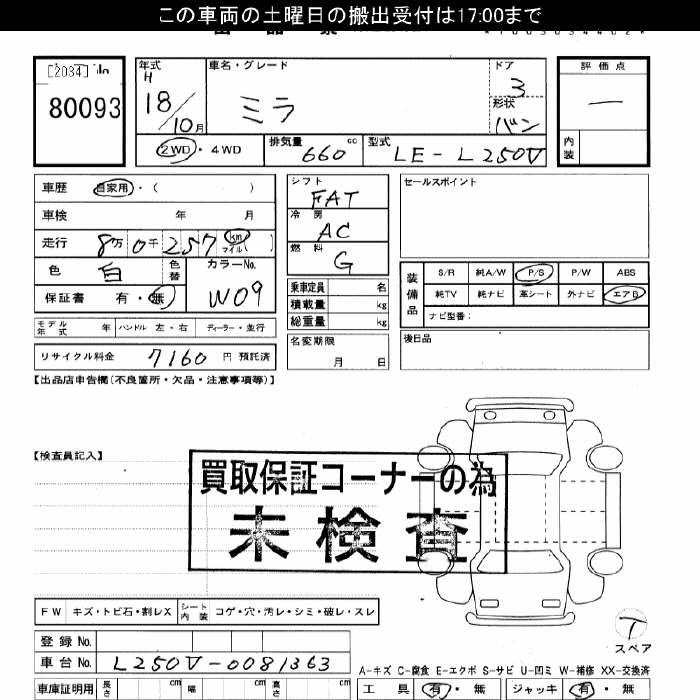 この車両の土曜日の搬出受付は17:00まで
[2034] No
80093
年式 車名・グレード ドア 評価点
H
18/10月 ミラ 3 —
形状
バン
2WD・4WD 排気量 660 cc 型式 LE-L250V 内装
車歴 自家用・( )
車検 年 月
走行 8万0千257 km マイル( )
色 白 色替 カラーNo. W09
保証書 有・無
モデル年式 年 ハンドル 左・右 ディーラー・並行
リサイクル料金 7160 円 預託済
シフト FAT
冷房 AC
燃料 G
乗車定員 名
積載量 kg
総重量 kg
名変期限
月 日
セールスポイント
装備品 S/R 純A/W P/S P/W ABS
純TV 純ナビ 革シート 外ナビ エアB
ナビ型番:
後日品
【出品店申告欄(不良箇所・欠品・注意事項等)】
【検査員記入】
買取保証コーナーの為
未検査
FW キズ・トビ石・割レX シート内装 コゲ・穴・汚レ・シミ・破レ・スレ
T
スペア
登録No.
車台No. L250V-0081363
A-キズ C-腐食 E-エクボ S-サビ U-凹ミ W-補修 XX-交換済
車庫証明用 長さ cm 幅 cm 高さ cm 工具 有・無 ジャッキ 有・無